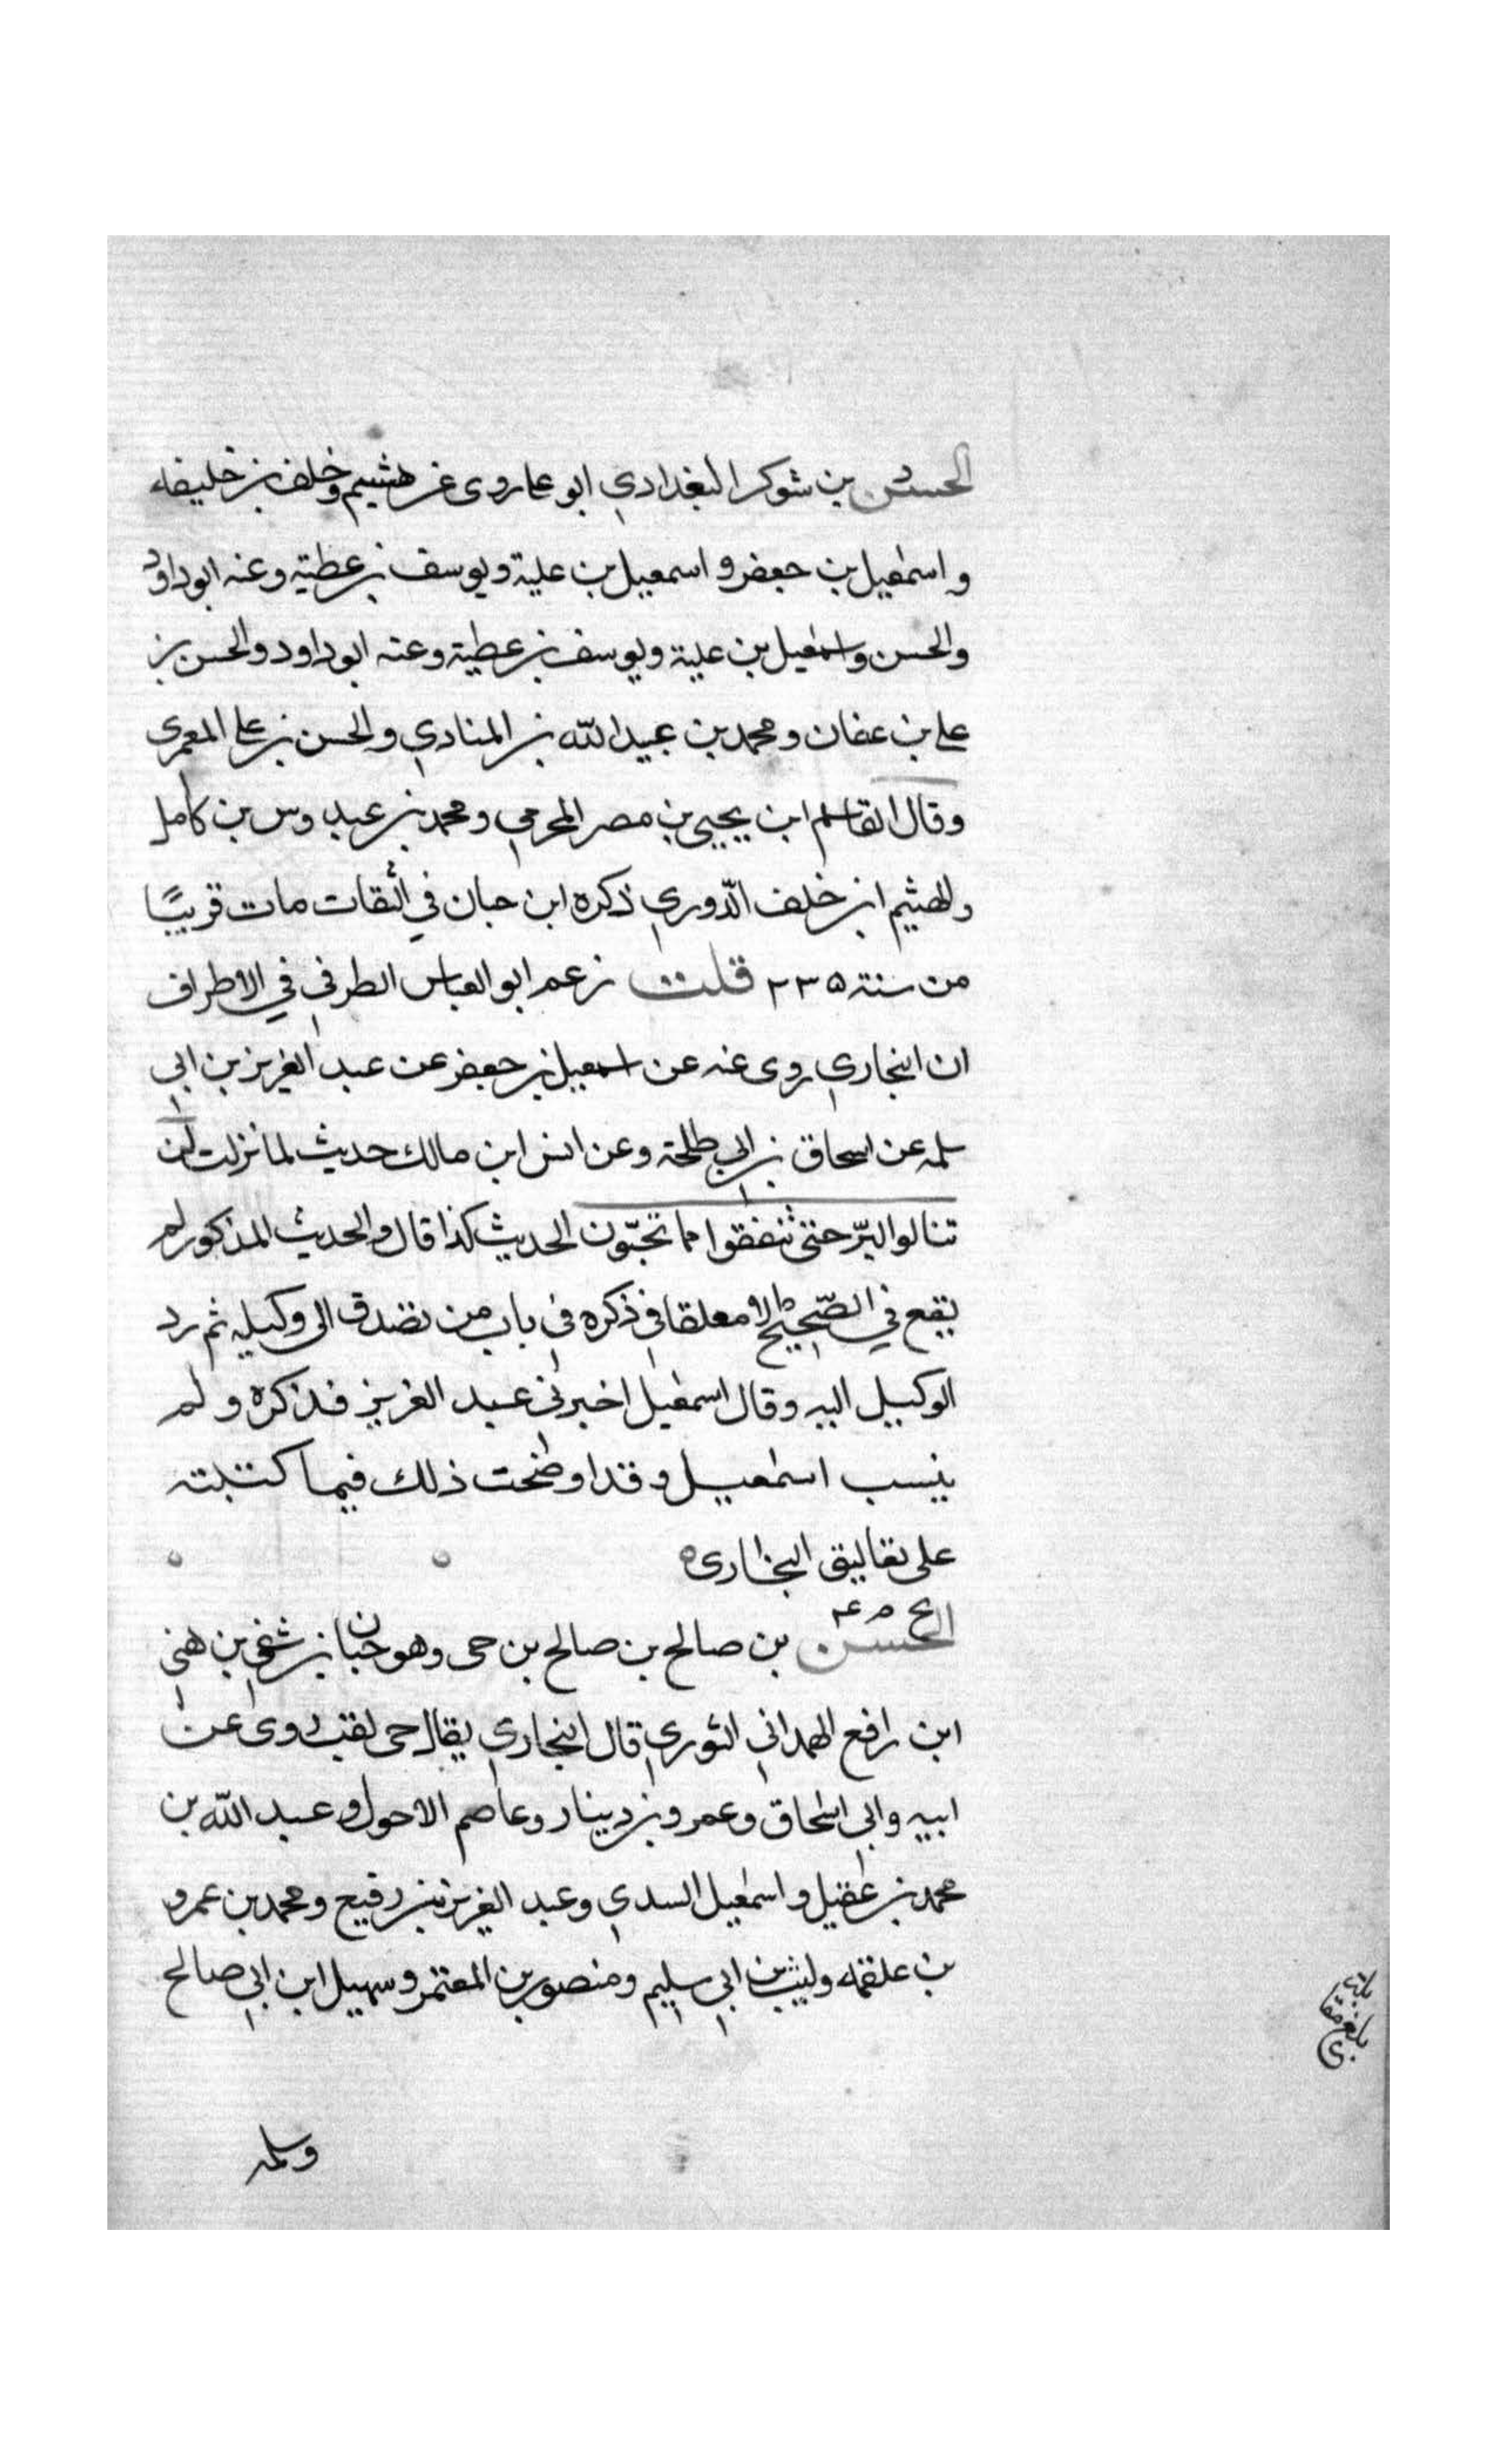 الحسن بن شوكر البغدادي ابو علي روى عن هشيم وخلف بن خليفه
و اسمعيل بن جعفر و اسمعيل بن علية و يوسف بن عطية وعنه ابو داود
والحسن و اسمعيل بن علية و يوسف بن عطية وعنه ابو داود والحسن بن
علي بن عفان و محمد بن عبيد الله بن المنادي والحسن بن علي المعمري
وقال القاسم ابن يحيى بن مصر المخرمي و محمد بن عبد وس بن كامل
والهثيم ابن خلف الدّوري ذكره ابن حبان في الثقات مات قريبًا
من سنة ٢٣٥ قلت زعم ابو العباس الطرفي في الاطراف
ان البخاري روى عنه عن اسمعيل بن جعفر عن عبد العزيز بن ابي
سلمه عن اسحاق بن ابي طلحة وعن انس ابن مالك حديث لما نزلت لن
تنالوا البرّ حتى تنفقوا مما تحبّون الحديث كذا قال والحديث المذكور لم
يقع في الصّحيح الا معلقا في ذكره في باب من تصدق الى وكيله ثم رد
الوكيل اليه وقال اسمعيل اخبرني عبد العزيز فذكره ولم
ينسب اسمعيل و قد اوضحت ذلك فيما كتبته
على تعاليق البخارى ه
بخ م ع
الحسن بن صالح بن صالح بن حى وهو حبان بن شفي بن هني
ابن رافع الهمداني الثوري قال البخاري يقال حى لقب روى عن
ابيه وابي اسحاق وعمرو بن دينار وعاصم الاحول و عبد الله بن
محمد بن عقيل و اسمعيل السدي وعبد العزيز بن رفيع و محمد بن عمرو
بن علقمه وليث بن ابي سليم ومنصور بن المعتمر و سهيل ابن ابي صالح
وسلمه